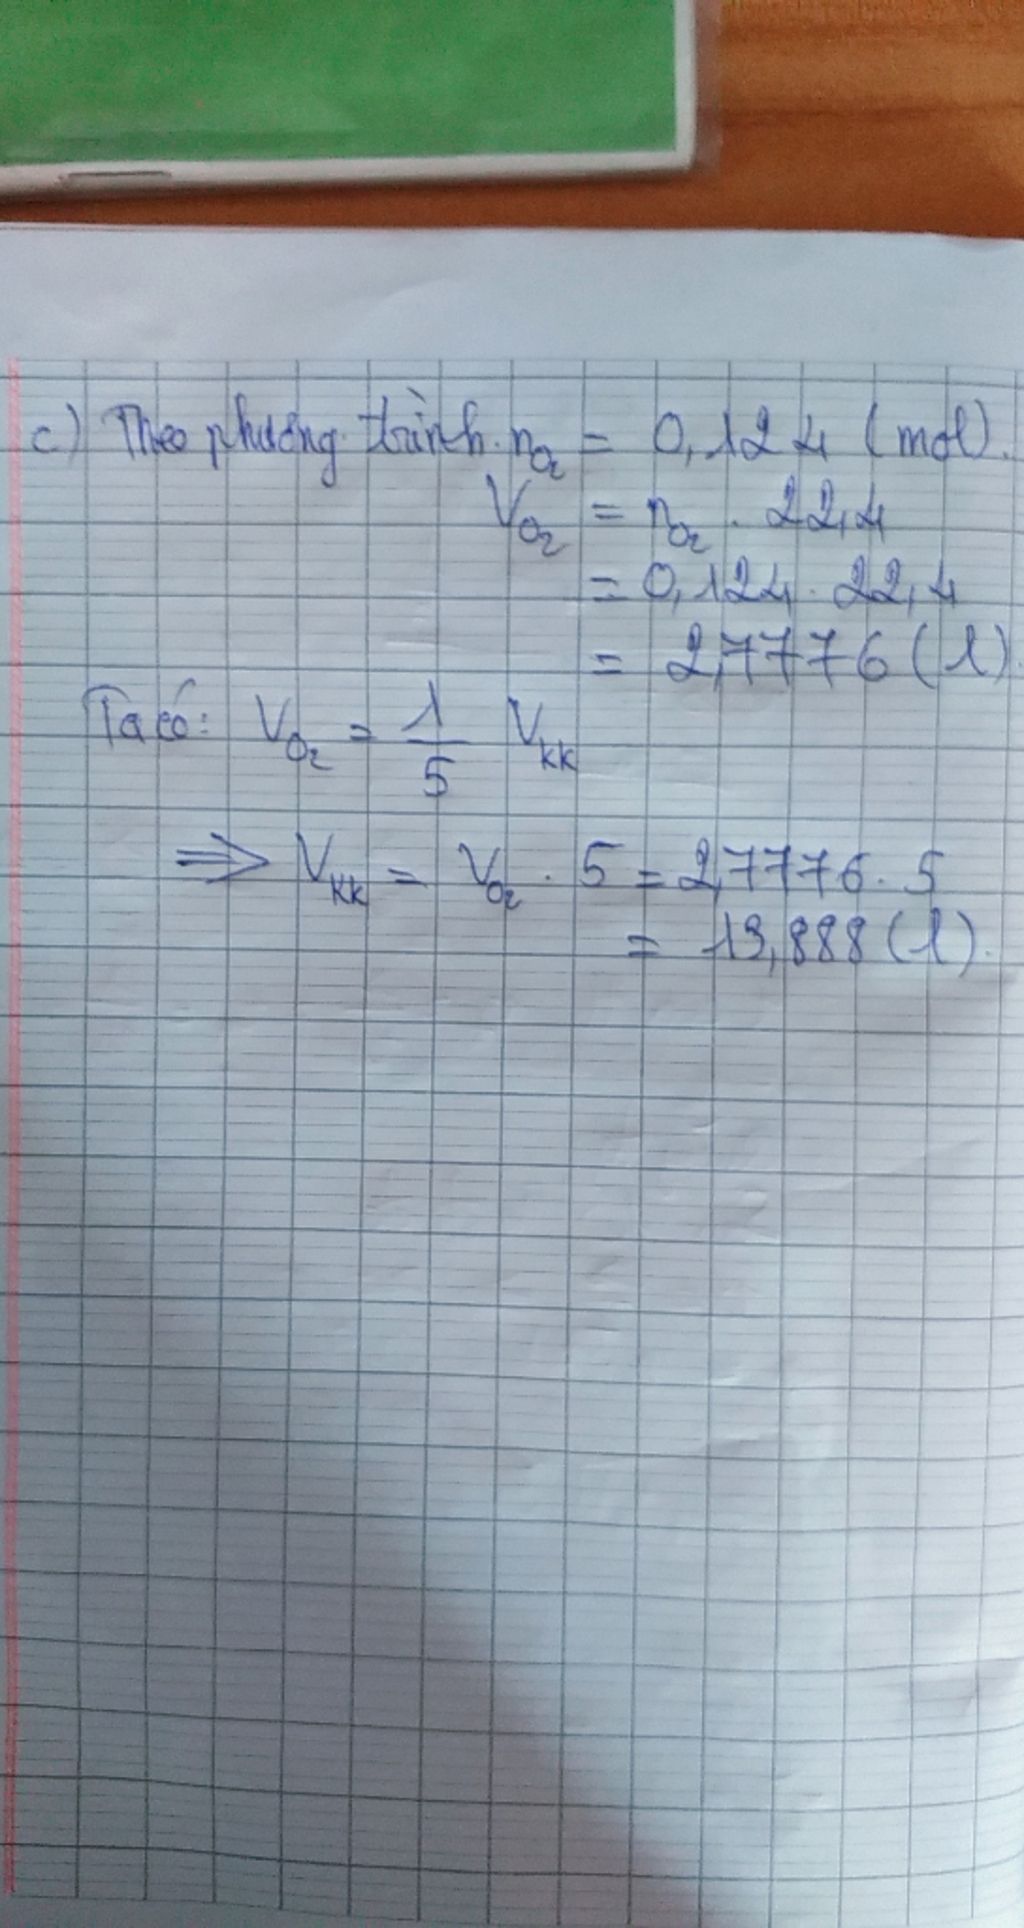 c) Theo phương trình. nO₂ = 0,124 (mol).
VO₂ = nO₂ . 22,4
= 0,124 . 22,4
= 2,7776 (l).
Ta có: VO₂ = 1/5 Vkk
⇒ Vkk = VO₂ . 5 = 2,7776 . 5
= 13,888 (l).